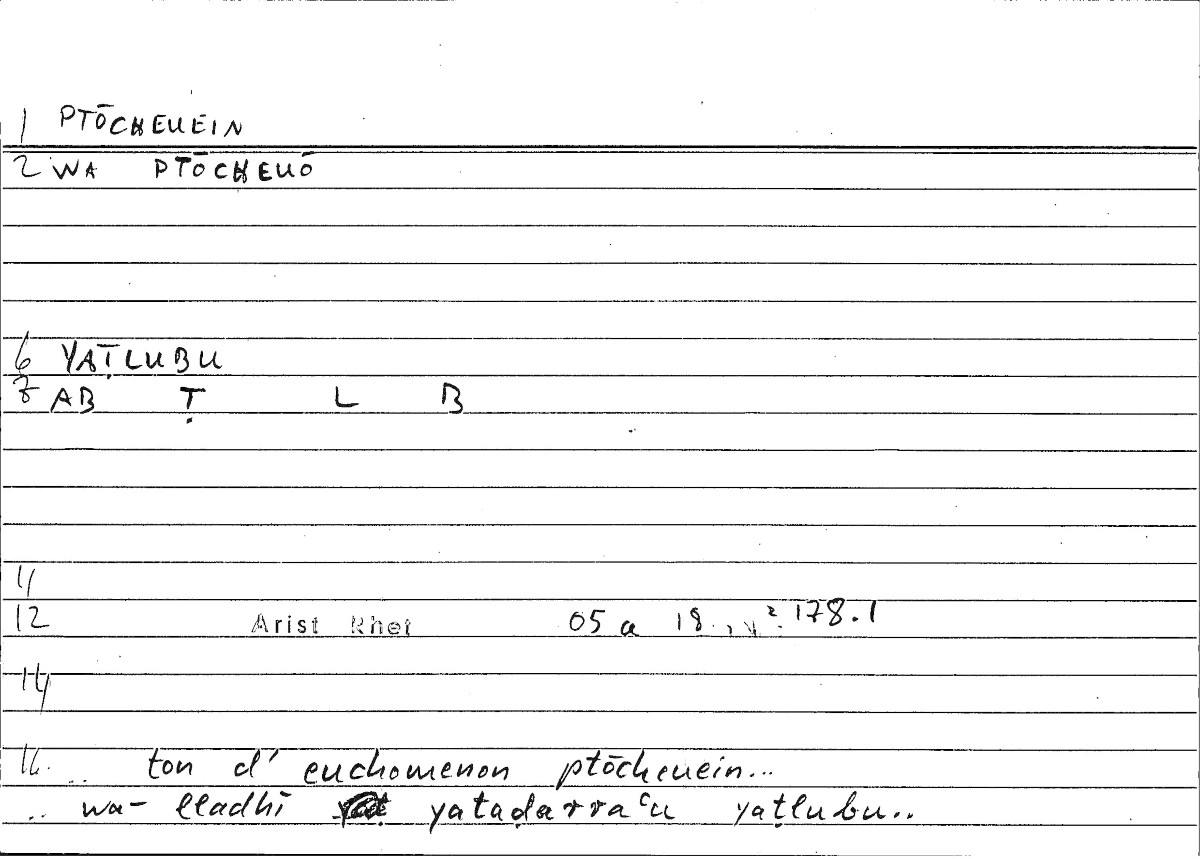 1 PTŌCHEUEIN
2 WA PTŌCHEUŌ
6 YAṬLUBU
7 AB Ṭ L B
11
12 Arist Rhet 05 a 18 178.1
14
16 .. ton d' euchomenon ptōcheuein...
.. wa- lladhī yataḍarraʿu yaṭlubu..